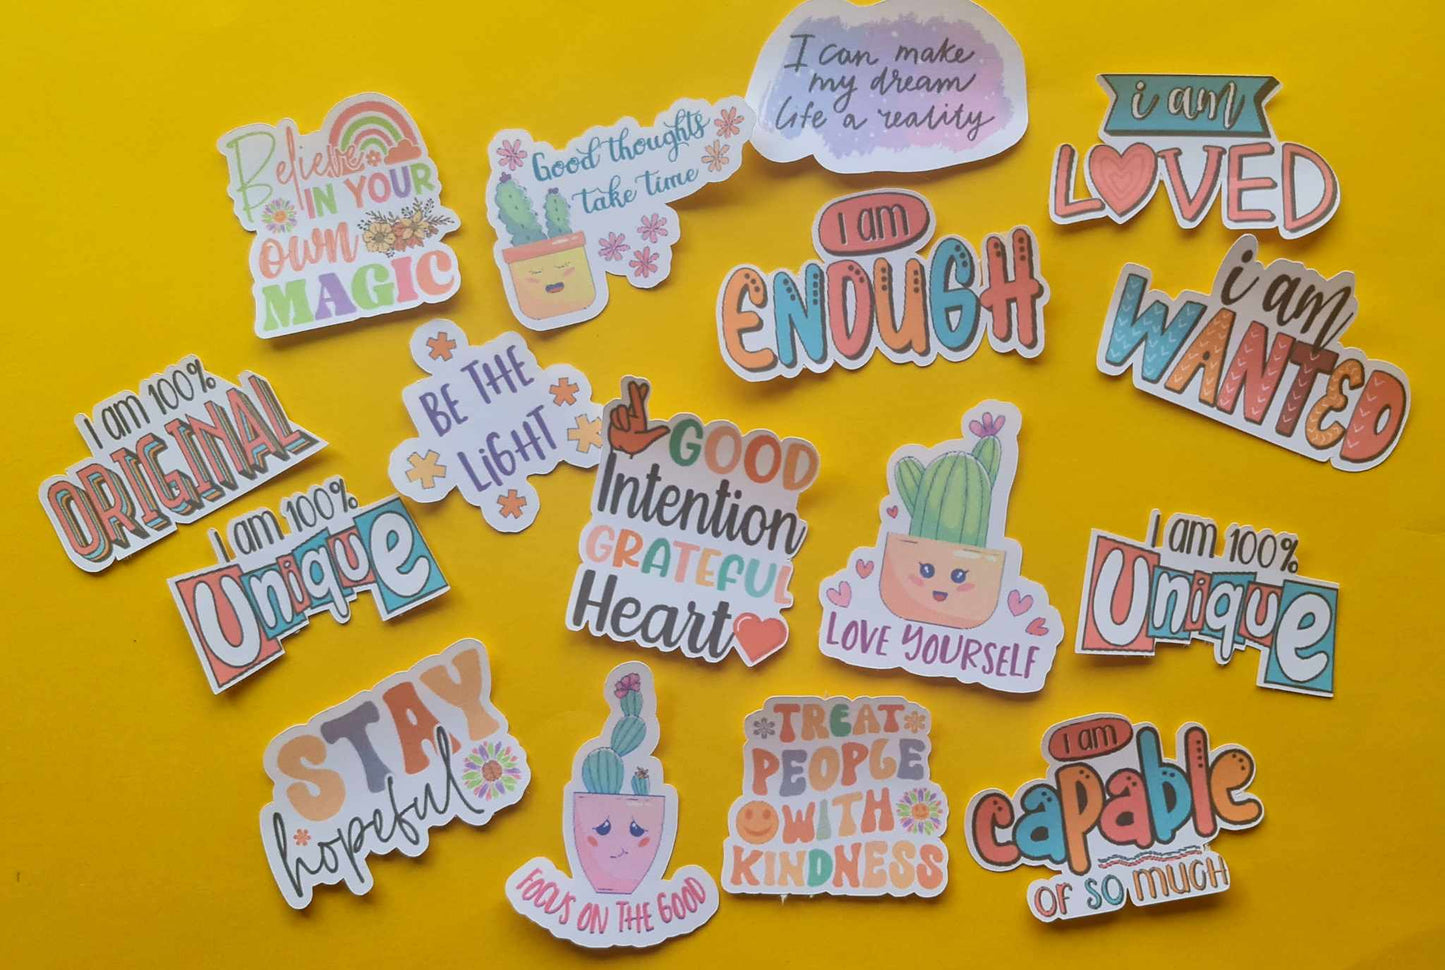 Believe
IN YOUR
own
MAGIC
Good thoughts
take time
I can make
my dream
life a reality
i am
LOVED
I am
ENOUGH
i am
WANTED
I am 100%
ORIGINAL
BE THE
LiGHT
I am 100%
UniquE
GOOD
Intention
GRATEFUL
Heart
LOVE YOURSELF
I am 100%
UniquE
STAY
hopeful
FOCUS ON THE GOOD
TREAT
PEOPLE
WITH
KINDNESS
I am
capable
OF SO MUCH